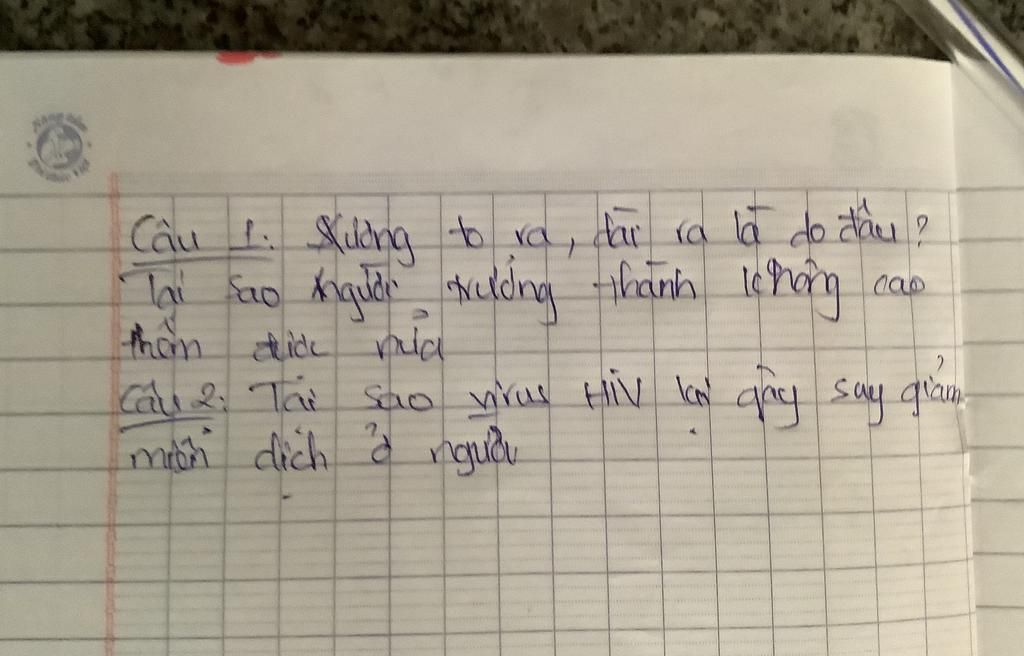 Câu 1: Xương to ra, dài ra là do đâu?
Tại sao người trưởng thành không cao
thêm được nữa
Câu 2: Tại sao virus HIV lại gây suy giảm
miễn dịch ở người